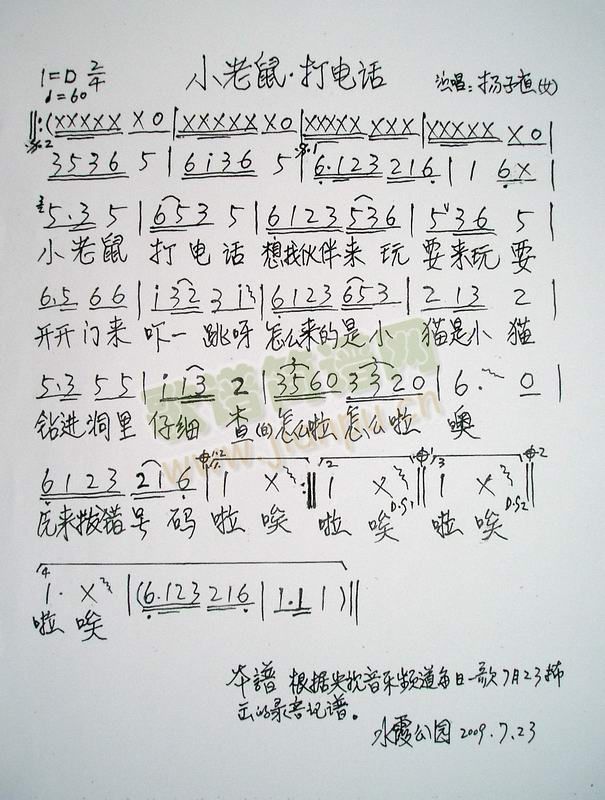 1=D 2/4 小老鼠·打电话 演唱：扬子
♩=60
‖:(XXXXX X0|XXXXX X0|XXXXX XXX|XXXXX X0|
3536 5|6i36 5|6·123 216|1 6X|
5·3 5|653 5|6123 536|5 36 5|
小老鼠 打电话 想找伙伴来玩 耍来玩耍
6·5 66|i32 3 i3|6123 653|2 13 2|
开开门来 吓一跳呀 怎么来的是小 猫是小猫
5·3 55|i i3 2|3560 3320|6· 0|
钻进洞里 仔细查(白)怎么啦 怎么啦 噢
6123 216|1 X:‖1 X‖1 X‖
原来拨错号码 啦唉 啦唉 啦唉
1· X|(6·123 216|1·1 1)‖
啦唉
本谱根据央视音乐频道每日一歌7月23播
出的录音记谱。
水霞公园 2009.7.23
歌谱简谱网
www.jianpu.cn